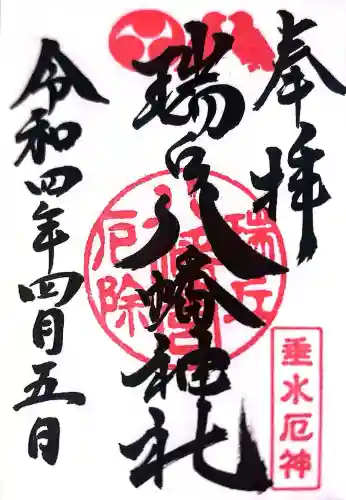 奉拝
瑞丘八幡神社
令和四年四月五日
瑞丘
八幡
厄除
垂水厄神